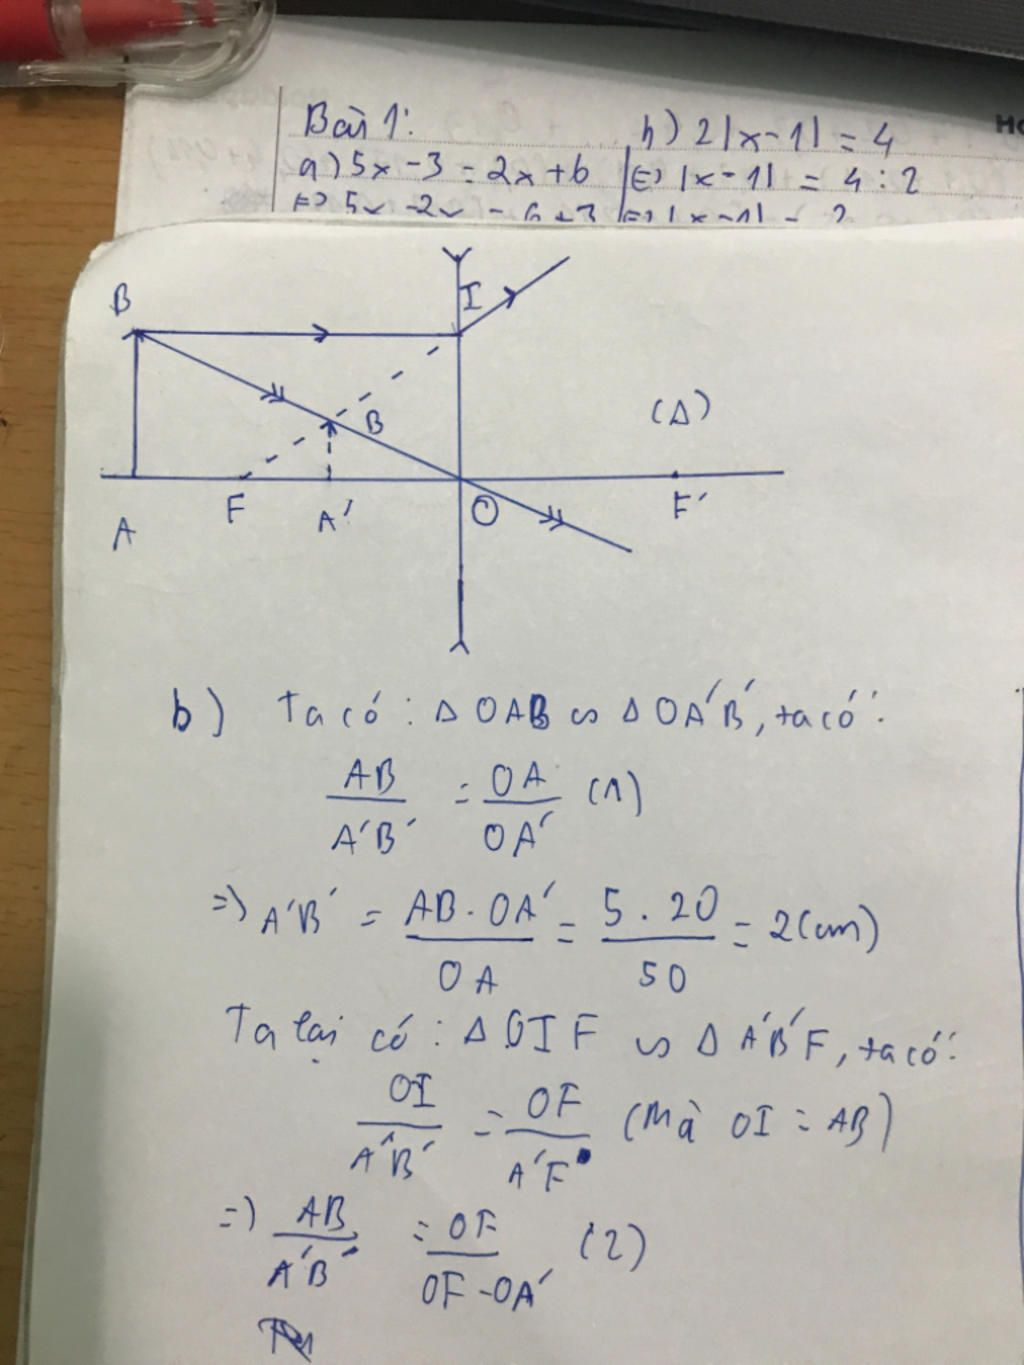 Bài 1:
a) 5x - 3 = 2x + 6
⇔ 5x - 2x = 6 + 3
h) 2|x - 1| = 4
⇔ |x - 1| = 4 : 2
⇔ |x - 1| = 2
Ho
B
I
B
(Δ)
A
F
A'
O
F'
b) Ta có : Δ OAB ∽ Δ OA'B', ta có :
AB/A'B' = OA/OA' (1)
=> A'B' = AB . OA'/OA = 5 . 20/50 = 2 (cm)
Ta lại có : Δ OIF ∽ Δ A'B'F, ta có :
OI/A'B' = OF/A'F (Mà OI = AB)
=> AB/A'B' = OF/OF - OA' (2)